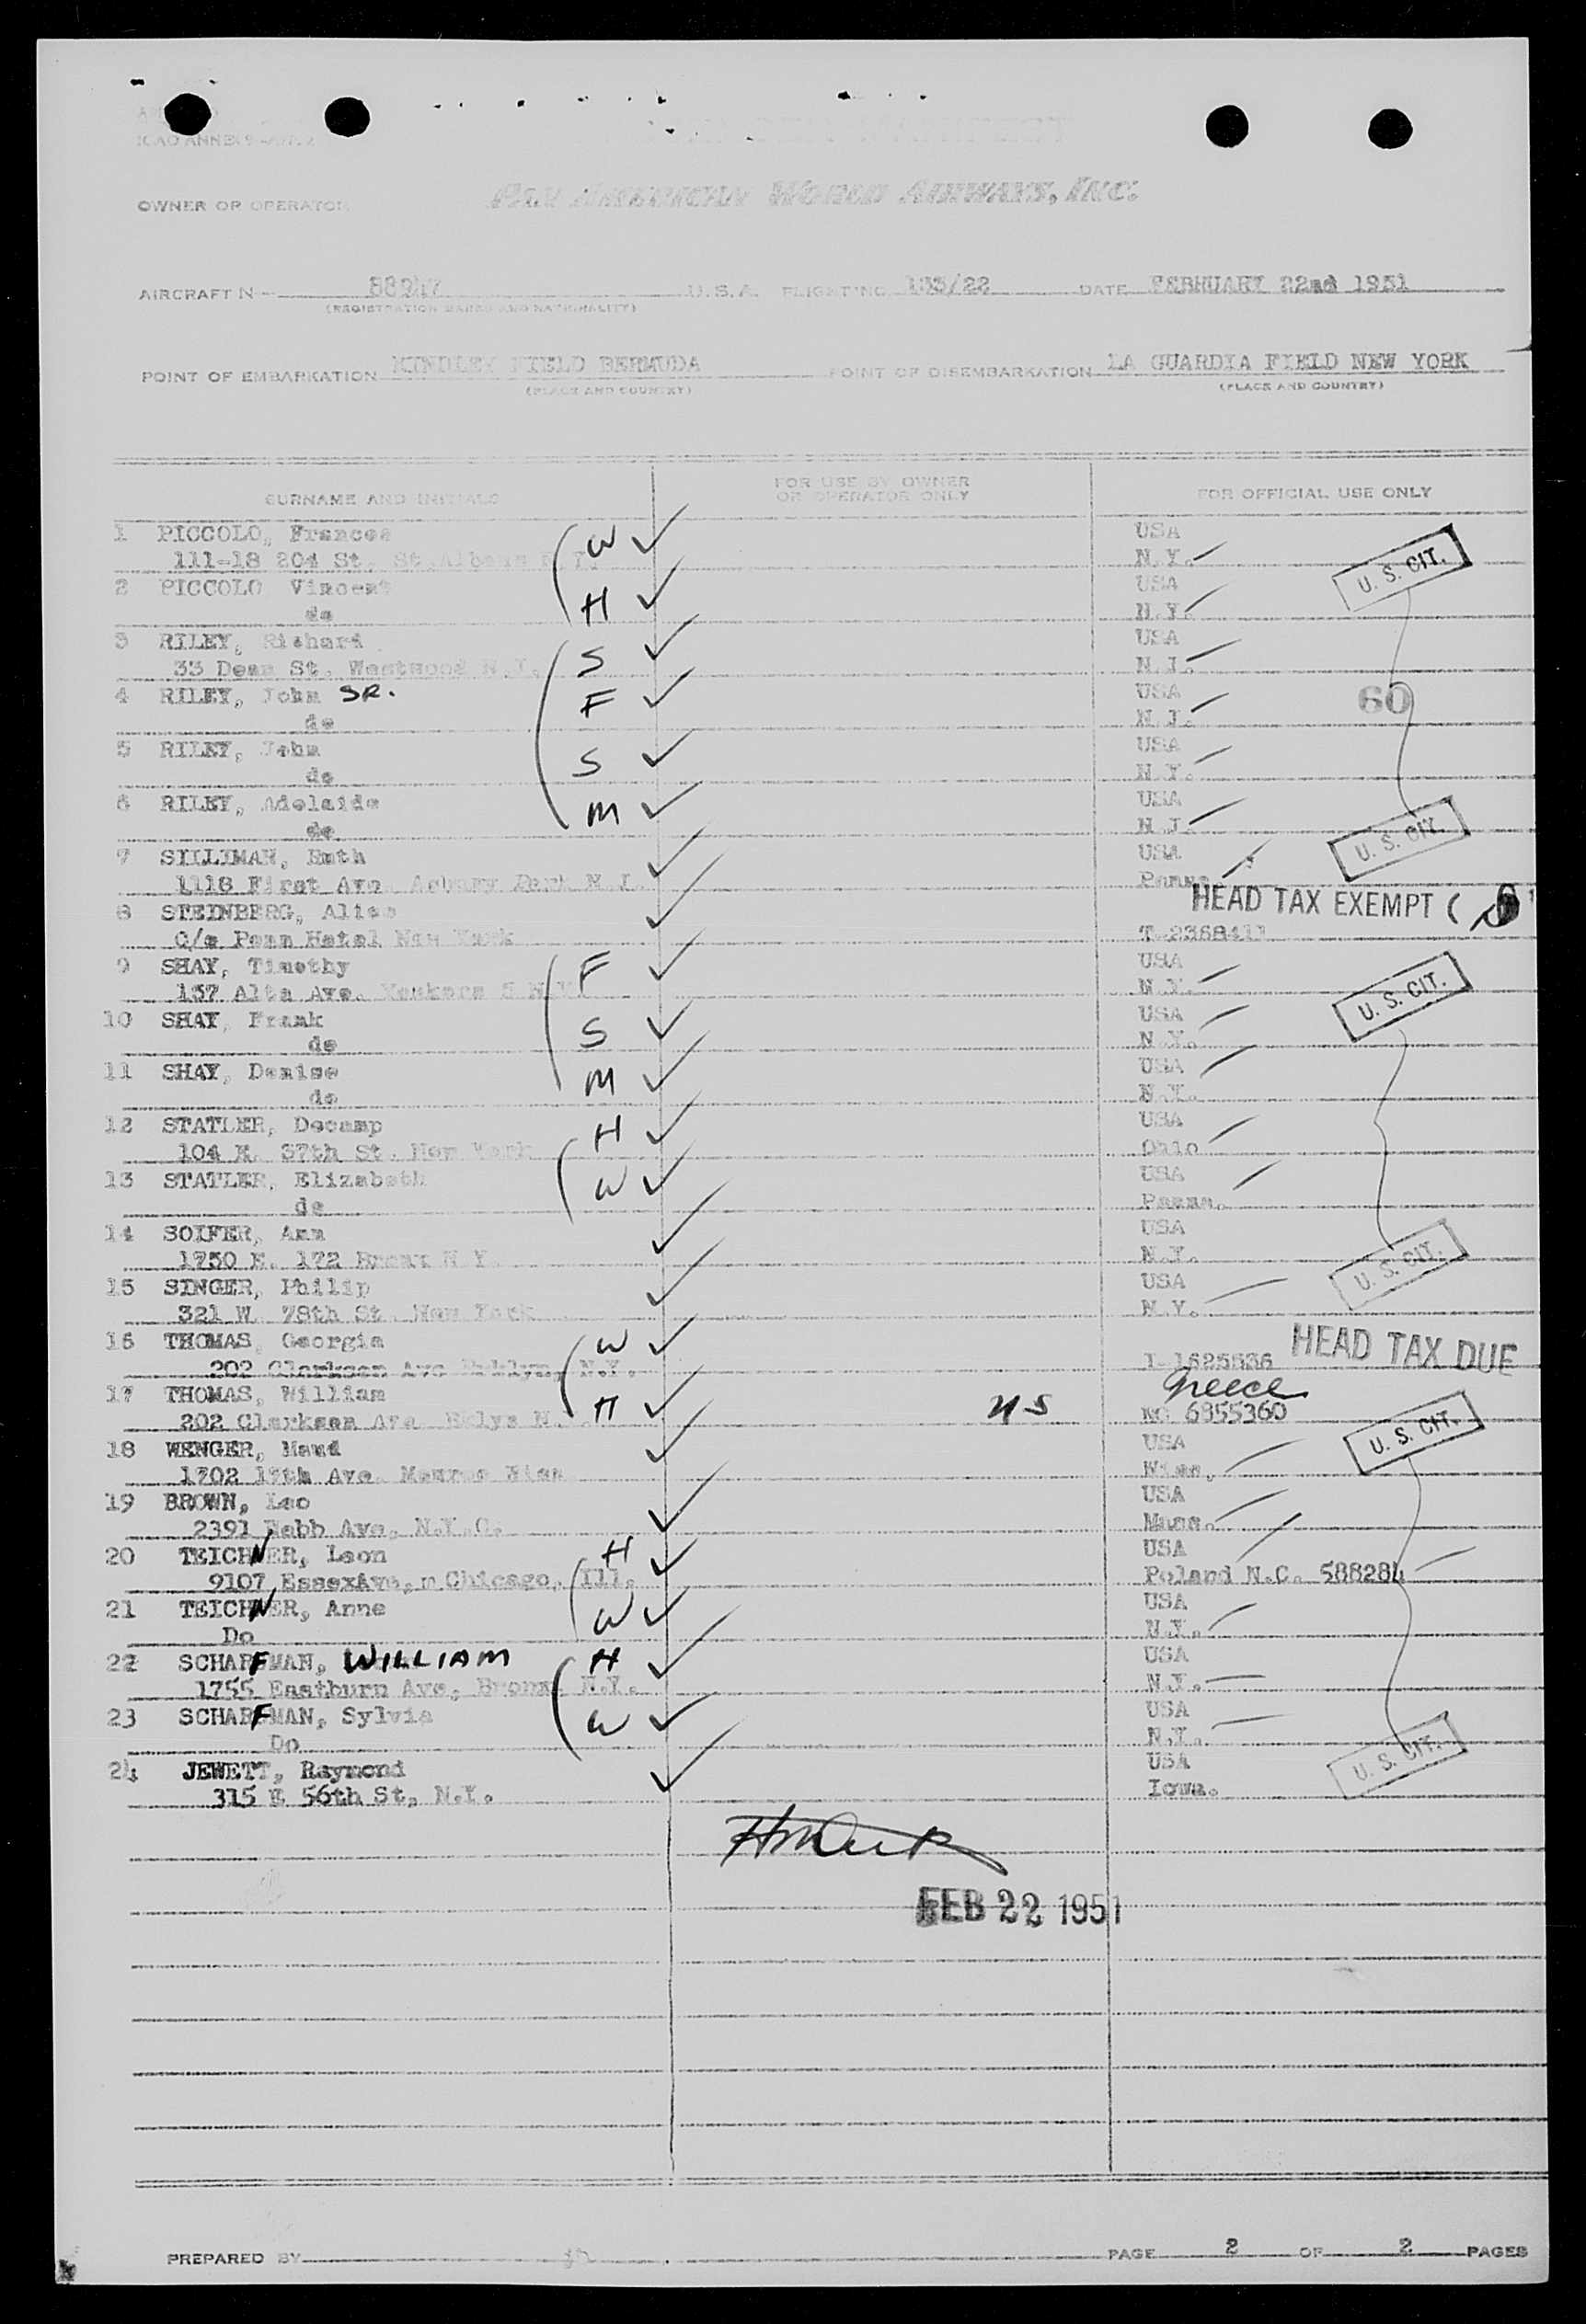 ICAO ANNEX 9
OWNER OR OPERATOR PAN AMERICAN WORLD AIRWAYS, INC.
AIRCRAFT N 88947 U.S.A. FLIGHT NO. 133/22 DATE FEBRUARY 22nd 1951
(REGISTRATION MARKS AND NATIONALITY)
POINT OF EMBARKATION KINDLEY FIELD BERMUDA POINT OF DISEMBARKATION LA GUARDIA FIELD NEW YORK
(PLACE AND COUNTRY) (PLACE AND COUNTRY)
SURNAME AND INITIALS FOR USE BY OWNER OR OPERATOR ONLY FOR OFFICIAL USE ONLY
1 PICCOLO, Frances W USA
111-18 204 St. St.Albans N.Y. N.Y. U. S. CIT.
2 PICCOLO Vincent H USA
do N.Y.
3 RILEY, Richard S USA
33 Dean St. Westwood N.J. N.J.
4 RILEY, John SR. F USA 60
do N.J.
5 RILEY, John S USA
do N.Y.
6 RILEY, Adelaide M USA
do N.J. U. S. CIT.
7 SILLIMAN, Ruth USA
1118 First Ave. Asbury Park N.J. Penna.
8 STEINBERG, Alice HEAD TAX EXEMPT (
C/o Penn Hotel New York T-2368411
9 SHAY, Timothy F USA
137 Alta Ave. Yonkers 5 N.Y. N.Y. U. S. CIT.
10 SHAY, Frank S USA
do N.Y.
11 SHAY, Denise M USA
do N.Y.
12 STATLER, Decamp H USA
104 E. 37th St. New York Ohio
13 STATLER, Elizabeth W USA
do Penna.
14 SOIFER, Ann USA
1750 E. 172 Bronx N.Y. N.Y. U. S. CIT.
15 SINGER, Philip USA
321 W. 78th St. New York N.Y.
16 THOMAS, Georgia W HEAD TAX DUE
202 Clarkson Ave Bklyn, N.Y. I-1625536
17 THOMAS, William H Greece
202 Clarkson Ave. Bklyn N. US NC 6955360
18 WENGER, Maud USA U. S. CIT.
1702 17th Ave. Monroe Wisn Wisn.
19 BROWN, Leo USA
2391 Webb Ave, N.Y.C. Mass.
20 TEICHNER, Leon H USA
9107 EssexAve, Chicago, Ill. Poland N.C. 588284
21 TEICHNER, Anne W USA
Do N.Y.
22 SCHARFMAN, WILLIAM H USA
1755 Eastburn Ave, Bronx N.Y. N.Y.
23 SCHARFMAN, Sylvia W USA
Do N.Y.
24 JEWETT, Raymond USA U. S. CIT.
315 E 56th St, N.Y. Iowa.
FEB 22 1951
PREPARED BY PAGE 2 OF 2 PAGES